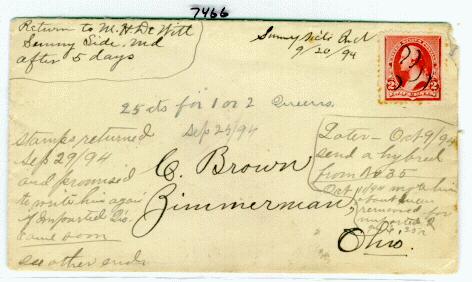 7466
Return to M. H. DeWitt
Sunny Side, Md
after 5 days
Sunny Side
9/20/94
25 cts for 1 or 2 Queens.
Sep 25/94
stamps returned
Sep 29/94
and promised
to write him again
if Imported Qs.
came soon
see other end
C. Brown
Zimmerman,
Ohio.
Later — Oct 9/94
send a hybred
from No 35
Oct 11/94 him
about queen
for
imported